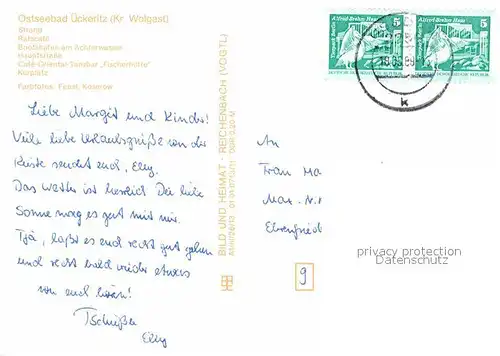 Ostseebad Ückeritz (Kr. Wolgast)
Strand
Ratscafé
Bootshafen am Achterwasser
Hauptstraße
Café-Orient-Tanzbar "Fischerhütte"
Kurplatz
Farbfotos: Feuer, Koserow
Liebe Margid und Kinder!
Viele liebe Urlaubsgrüße von der
Küste sendet Euch, Elly.
Das Wetter ist herrlich. Die liebe
Sonne mag es gut mit mir.
Tjä, laßt es euch recht gut gehen
und recht bald wieder etwas
von euch hören!
Tschüßer
Elly
BILD UND HEIMAT · REICHENBACH (VOGTL)
5 Alfred-Brehm-Haus
Tierpark Berlin
5 Alfred-Brehm-Haus
k
An
Frau Ma
Max-
privacy protection
Datenschutz
9